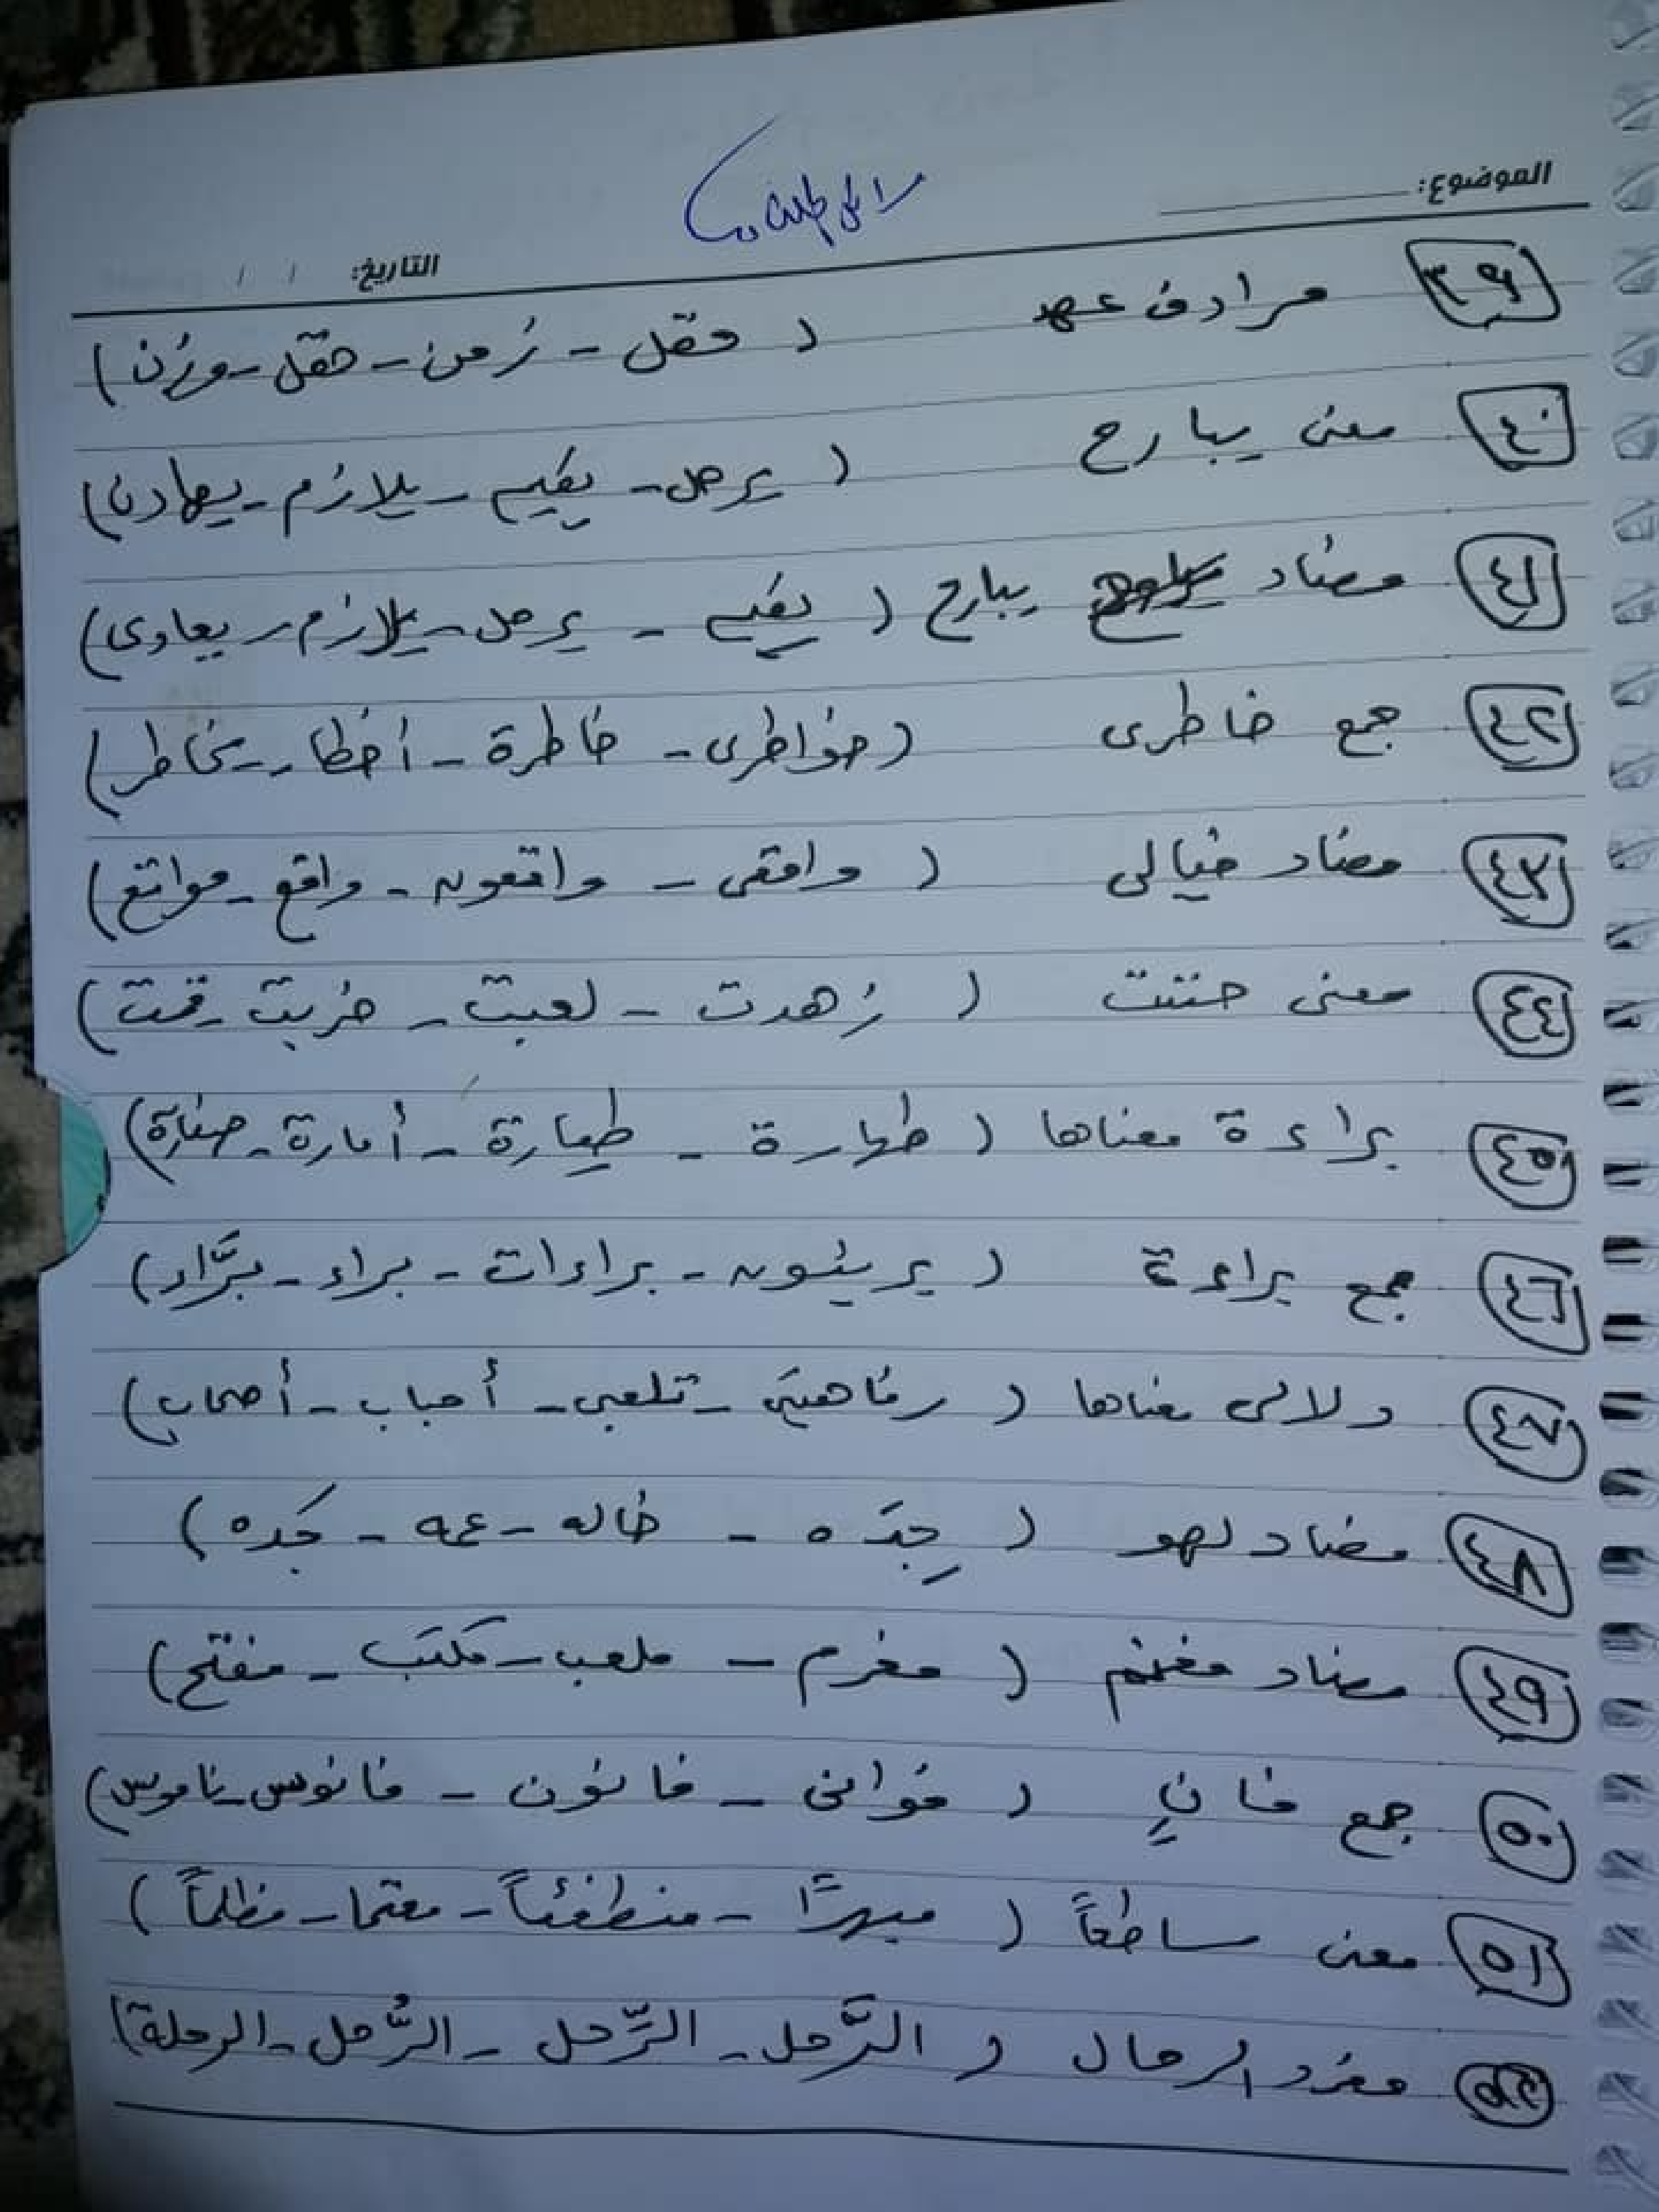 الموضوع:
التاريخ: / /
٣٩ مرادف عهد ( حقل - زمن - حقل - وزن )
٤٠ معنى يبارح ( يرحل - يقيم - يلازم - يهادن )
٤١ مضاد يبارح ( يقيم - يرحل - يلازم - يعادى )
٤٢ جمع خاطرى ( خواطرى - خاطرة - أخطار - مخاطر )
٤٣ مضاد خيالى ( واقعى - واقعون - واقع - مواقع )
٤٤ معنى حننت ( زهدت - لعبت - ضربت - قمت )
٤٥ براءة معناها ( طهارة - طيارة - أمارة - صفارة )
٤٦ جمع براءة ( بريئون - براءات - براء - برَّاد )
٤٧ دلالى معناها ( رفاهيتى - تلعبى - أحباب - أصحاب )
٤٨ مضاد لهو ( جِدَّه - خاله - عمه - جَده )
٤٩ مضاد مغنم ( مغرم - ملعب - مكتب - مفتح )
٥٠ جمع فانٍ ( فوانى - فانون - فانوس - ناموس )
٥١ معنى ساطعاً ( مبهرًا - منطفئاً - معتما - مظلماً )
٥٢ مفرد الرحال ( الرَّحل - الرِّحل - الرُّحل - الرحلة )